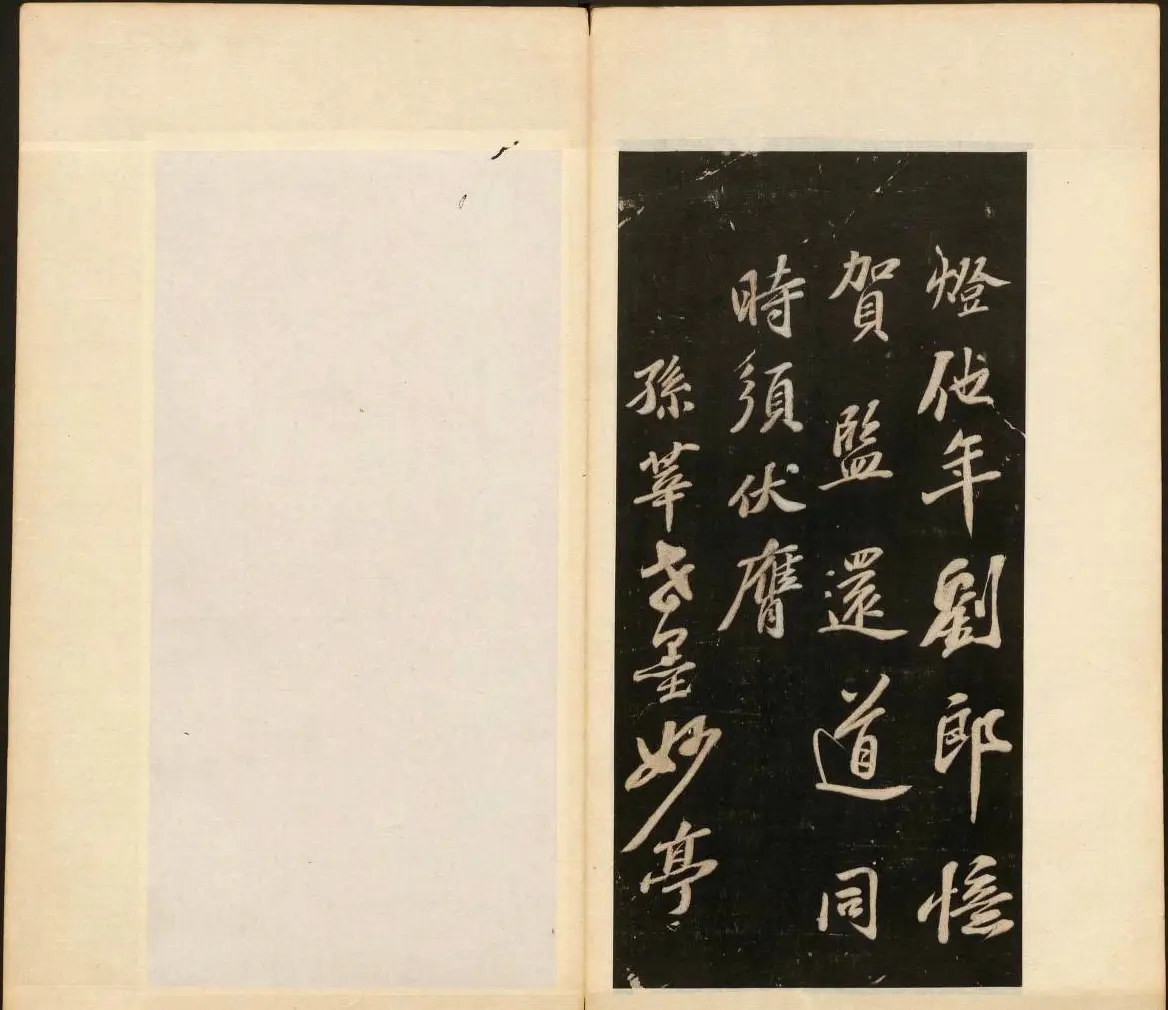 燈他年劉郎憶
賀監還道同
時須伏膺
孫莘老墨妙亭